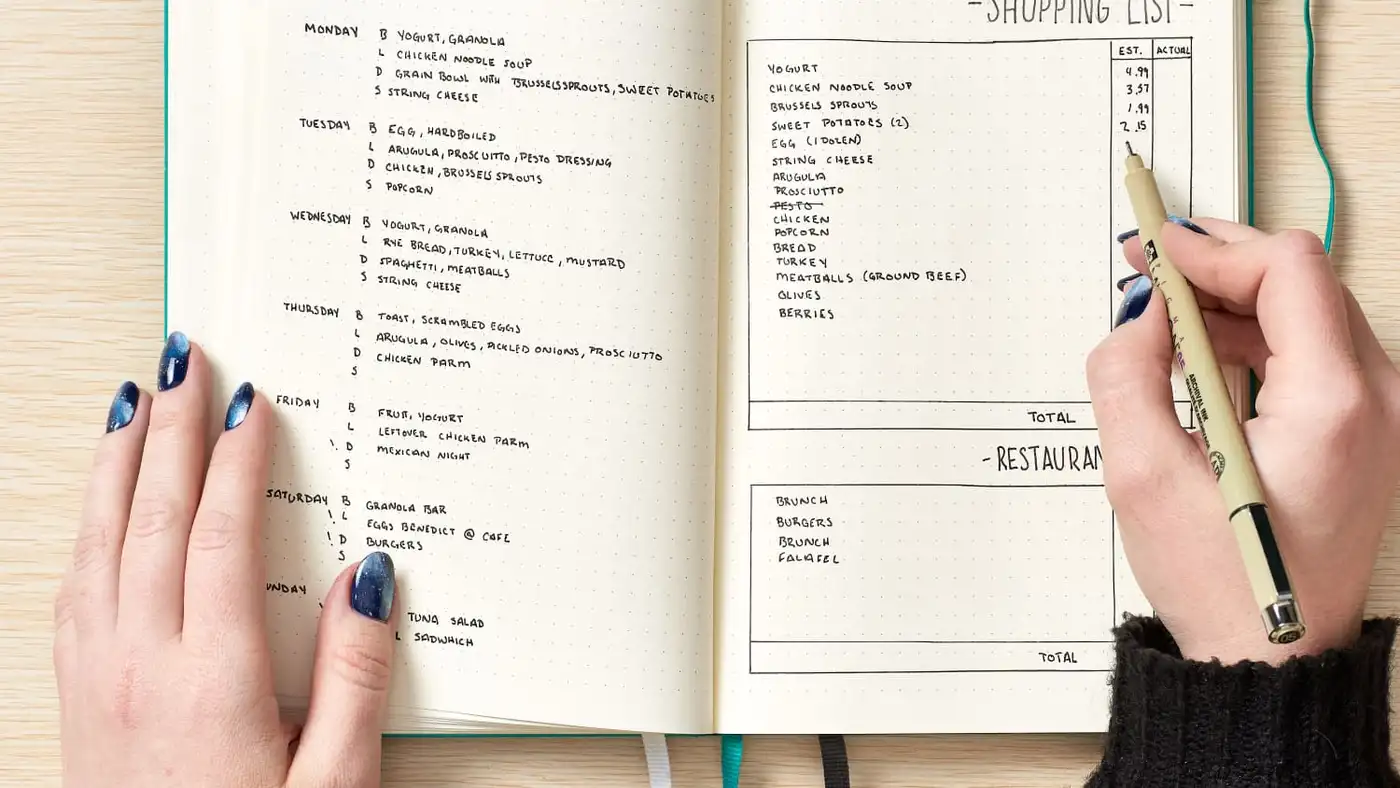 MONDAY B YOGURT, GRANOLA
L CHICKEN NOODLE SOUP
D GRAIN BOWL WITH BRUSSELS SPROUTS, SWEET POTATOES
S STRING CHEESE
TUESDAY B EGG, HARDBOILED
L ARUGULA, PROSCUITTO, PESTO DRESSING
D CHICKEN, BRUSSELS SPROUTS
S POPCORN
WEDNESDAY B YOGURT, GRANOLA
L RYE BREAD, TURKEY, LETTUCE, MUSTARD
D SPAGHETTI, MEATBALLS
S STRING CHEESE
THURSDAY B TOAST, SCRAMBLED EGGS
L ARUGULA, OLIVES, PICKLED ONIONS, PROSCIUTTO
D CHICKEN PARM
S
FRIDAY B FRUIT, YOGURT
L LEFTOVER CHICKEN PARM
! D MEXICAN NIGHT
S
SATURDAY B GRANOLA BAR
! L EGGS BENEDICT @ CAFE
! D BURGERS
S
UNDAY
TUNA SALAD
L SADWHICH
-SHOPPING LIST-
EST. ACTUAL
YOGURT 4.99
CHICKEN NOODLE SOUP 3.57
BRUSSELS SPROUTS 1.99
SWEET POTATOES (2) 2.15
EGG (1 DOZEN)
STRING CHEESE
ARUGULA
PROSCIUTTO
PESTO
CHICKEN
POPCORN
BREAD
TURKEY
MEATBALLS (GROUND BEEF)
OLIVES
BERRIES
TOTAL
-RESTAURAN
BRUNCH
BURGERS
BRUNCH
FALAFEL
TOTAL
ARCHIVAL INK
05